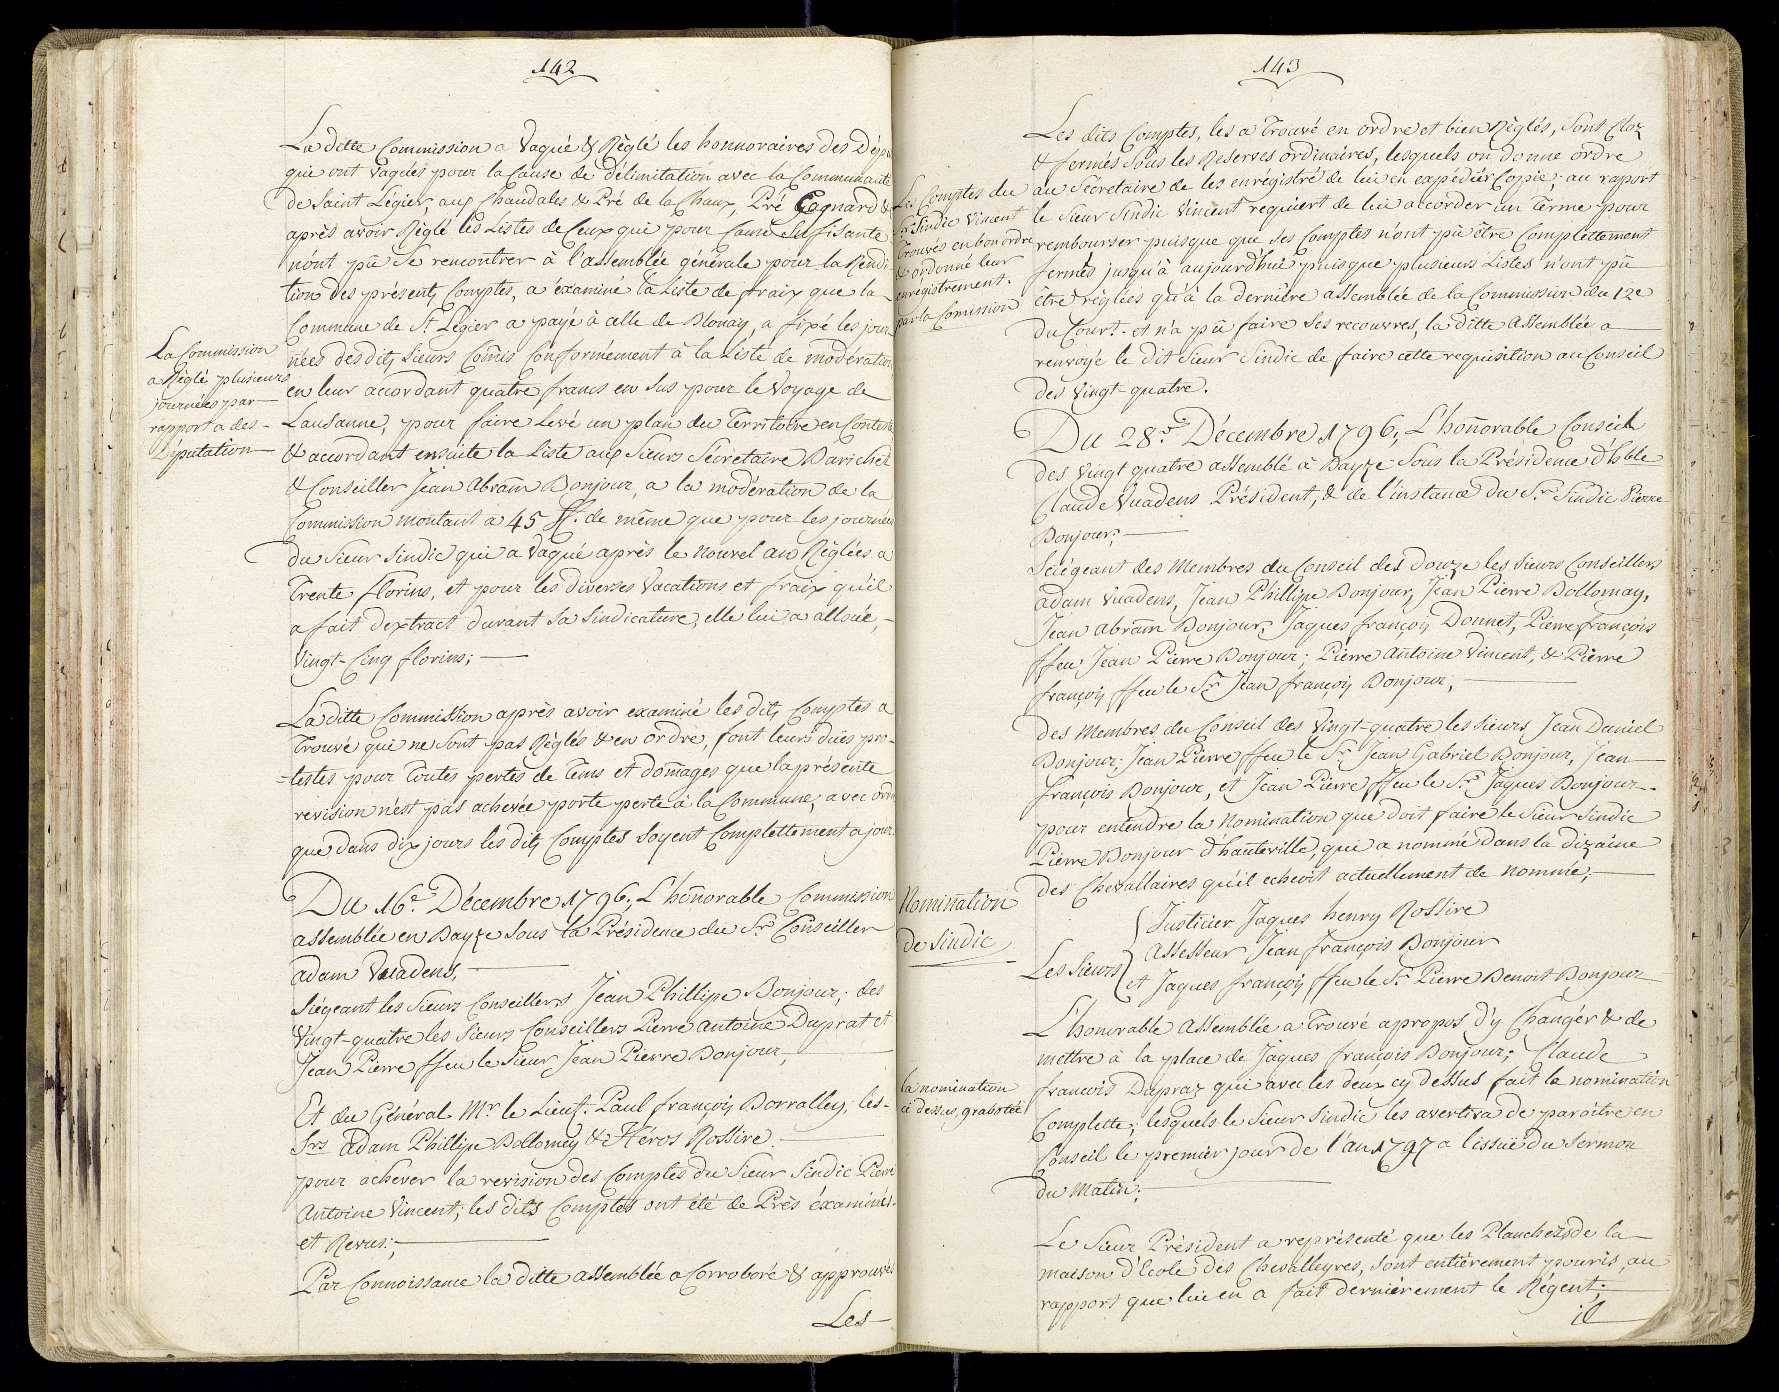 142
La ditte Commission a Vaqué & Règlé les honnoraires des Dépu
qui ont Vaqués pour la Cause de délimitation avec la Communauté
de Saint Légier, aux Chaudales & Pré de la Chaux, Pré Cagnard &
après avoir Règlé les Listes de Ceux qui pour Cause Suffisante
n'ont pû se rencontrer à l'assemblée générale pour la Rendi
tion des présents Comptes, a éxaminé la Liste de fraix que la
Commune de St. Légier a payé à celle de Blonay, a fixé les jour
La Commission
a Règlé plusieurs
journées par
rapport a des
Députation
nées des dits Sieurs Comis Conformément à la Liste de modération
en leur accordant quatre francs en Sus pour le Voyage de
Lausanne, pour faire Levé un plan du Territoire en Conteste
& accordant ensuite la Liste aux Sieurs Sécretaire Barichet
& Conseiller Jean Abram Bonjour, a la modération de la
Commission montant à 45 ff. de même que pour les journées
du Sieur Sindic qui a Vaqué après le Nouvel an Règlées a
Trente florins, et pour les diverses Vacations et fraix qu'il
a fait d'extract durant Sa Sindicature, elle lui a alloüé,
Vingt-Cinq florins;
La ditte Commission après avoir examiné les dits Comptes a
Trouvé qui ne Sont pas Règlés & en ordre, font leurs dües pro-
-testes pour Toutes pertes de Tems et domages que la présente
revision n'est pas achevée porte perte à la Commune, avec ordre
que dans dix jours les dits Comptes Soyent Complettement a jour.
Du 16e. Décembre 1796, L'honorable Commission
assemblée en Bayze Sous la Présidence du Sr. Conseiller
adam Vuadens,
Siégeant les Sieurs Conseillers Jean Phillipe Bonjour; des
Vingt-quatre les Sieurs Conseillers Pierre Antoine Duprat et
Jean Pierre ffeu le Sieur Jean Pierre Bonjour,
Et du Général Mr. le Lieut. Paul françois Borralley, les
Srs adam Phillipe Dollomey & Héros Rossire.
pour achever la revision des Comptes du Sieur Sindic Pierre
Antoine Vincent; les dits Comptes ont été de Près éxaminés
et Revus;
Par Connoissance la ditte assemblée a Corroboré & approuvés
Les
143
Les dits Comptes, les a Trouvé en ordre et bien Règlés, Sont Cloz
& fermés Sous les Reserves ordinaires, lesquels on donne ordre
Les Comptes du
Sr Sindic Vincent
Trouvés en bon ordre
& ordonné leur
enregistrement.
par la Comission
au Sécretaire de les enrégistré de lui en expedier Copie; au rapport
le Sieur Sindic Vincent requiert de lui accorder un Terme pour
rembourser puisque que Ses Comptes n'ont pû être Complettement
fermés jusqu'à aujourd'hui puisque plusieurs Listes n'ont pû
être règlées qu'à la dernière assemblée de la Commission du 12e
du Court. et n'a pû faire Ses recouvres, la ditte Assemblée a
renvoyé le dit Sieur Sindic de faire cette requisition au Conseil
des Vingt-quatre.
Du 28e. Décembre 1796, L'honorable Conseil
des Vingt quatre assemblé à Bayze Sous la Présidence d'hble
Claude Vuadens Président, & de l'instance du Sr. Sindic Pierre
Bonjour;
Seiégeant des Membres du Conseil des Douze les Sieurs Conseillers
adam Vuadens, Jean Phillipe Bonjour, Jean Pierre Dollomay,
Jean Abram Bonjour, Jaques françois Donnet, Pierre françois
ffeu Jean Pierre Bonjour; Pierre Antoine Vincent, & Pierre
françois ffeu le Sr Jean françois Bonjour,
Des Membres du Conseil des Vingt-quatre les Sieurs Jean Daniel
Bonjour; Jean Pierre ffeu le Sr. Jean Gabriel Bonjour, Jean
françois Bonjour, et Jean Pierre ffeu le Sr. Jaques Bonjour.
pour entendre la Nomination que doit faire le Sieur Sindic
Pierre Bonjour d'hauteville, qui a nominé dans la dizaine
des Chevallaires qu'il echeoit actuellement de nominé;
Nomination
de Sindic
Les Sieurs
Justicier Jaques henry Rossire
Assesseur Jean françois Bonjour
et Jaques françois ffeu le Sr. Pierre Benoit Bonjour
L'honorable Assemblée a Trouvé apropos d'y Changér & de
mettre à la place de Jaques françois Bonjour; Claude
la nomination
ci dessus, grabotée
francois Dupraz qui avec les deux cy dessus fait la nomination
Complette; lesquels le Sieur Sindic les avertira de paroître en
Conseil le premier jour de l'an 1797 a l'issüe du Sermon
du Matin;
Le Sieur Président a représenté que les Planchers de la
maison d'Ecole des Chevalleyres, Sont entièrement pouris, au
rapport que lui en a fait dernièrement le Régent;
il